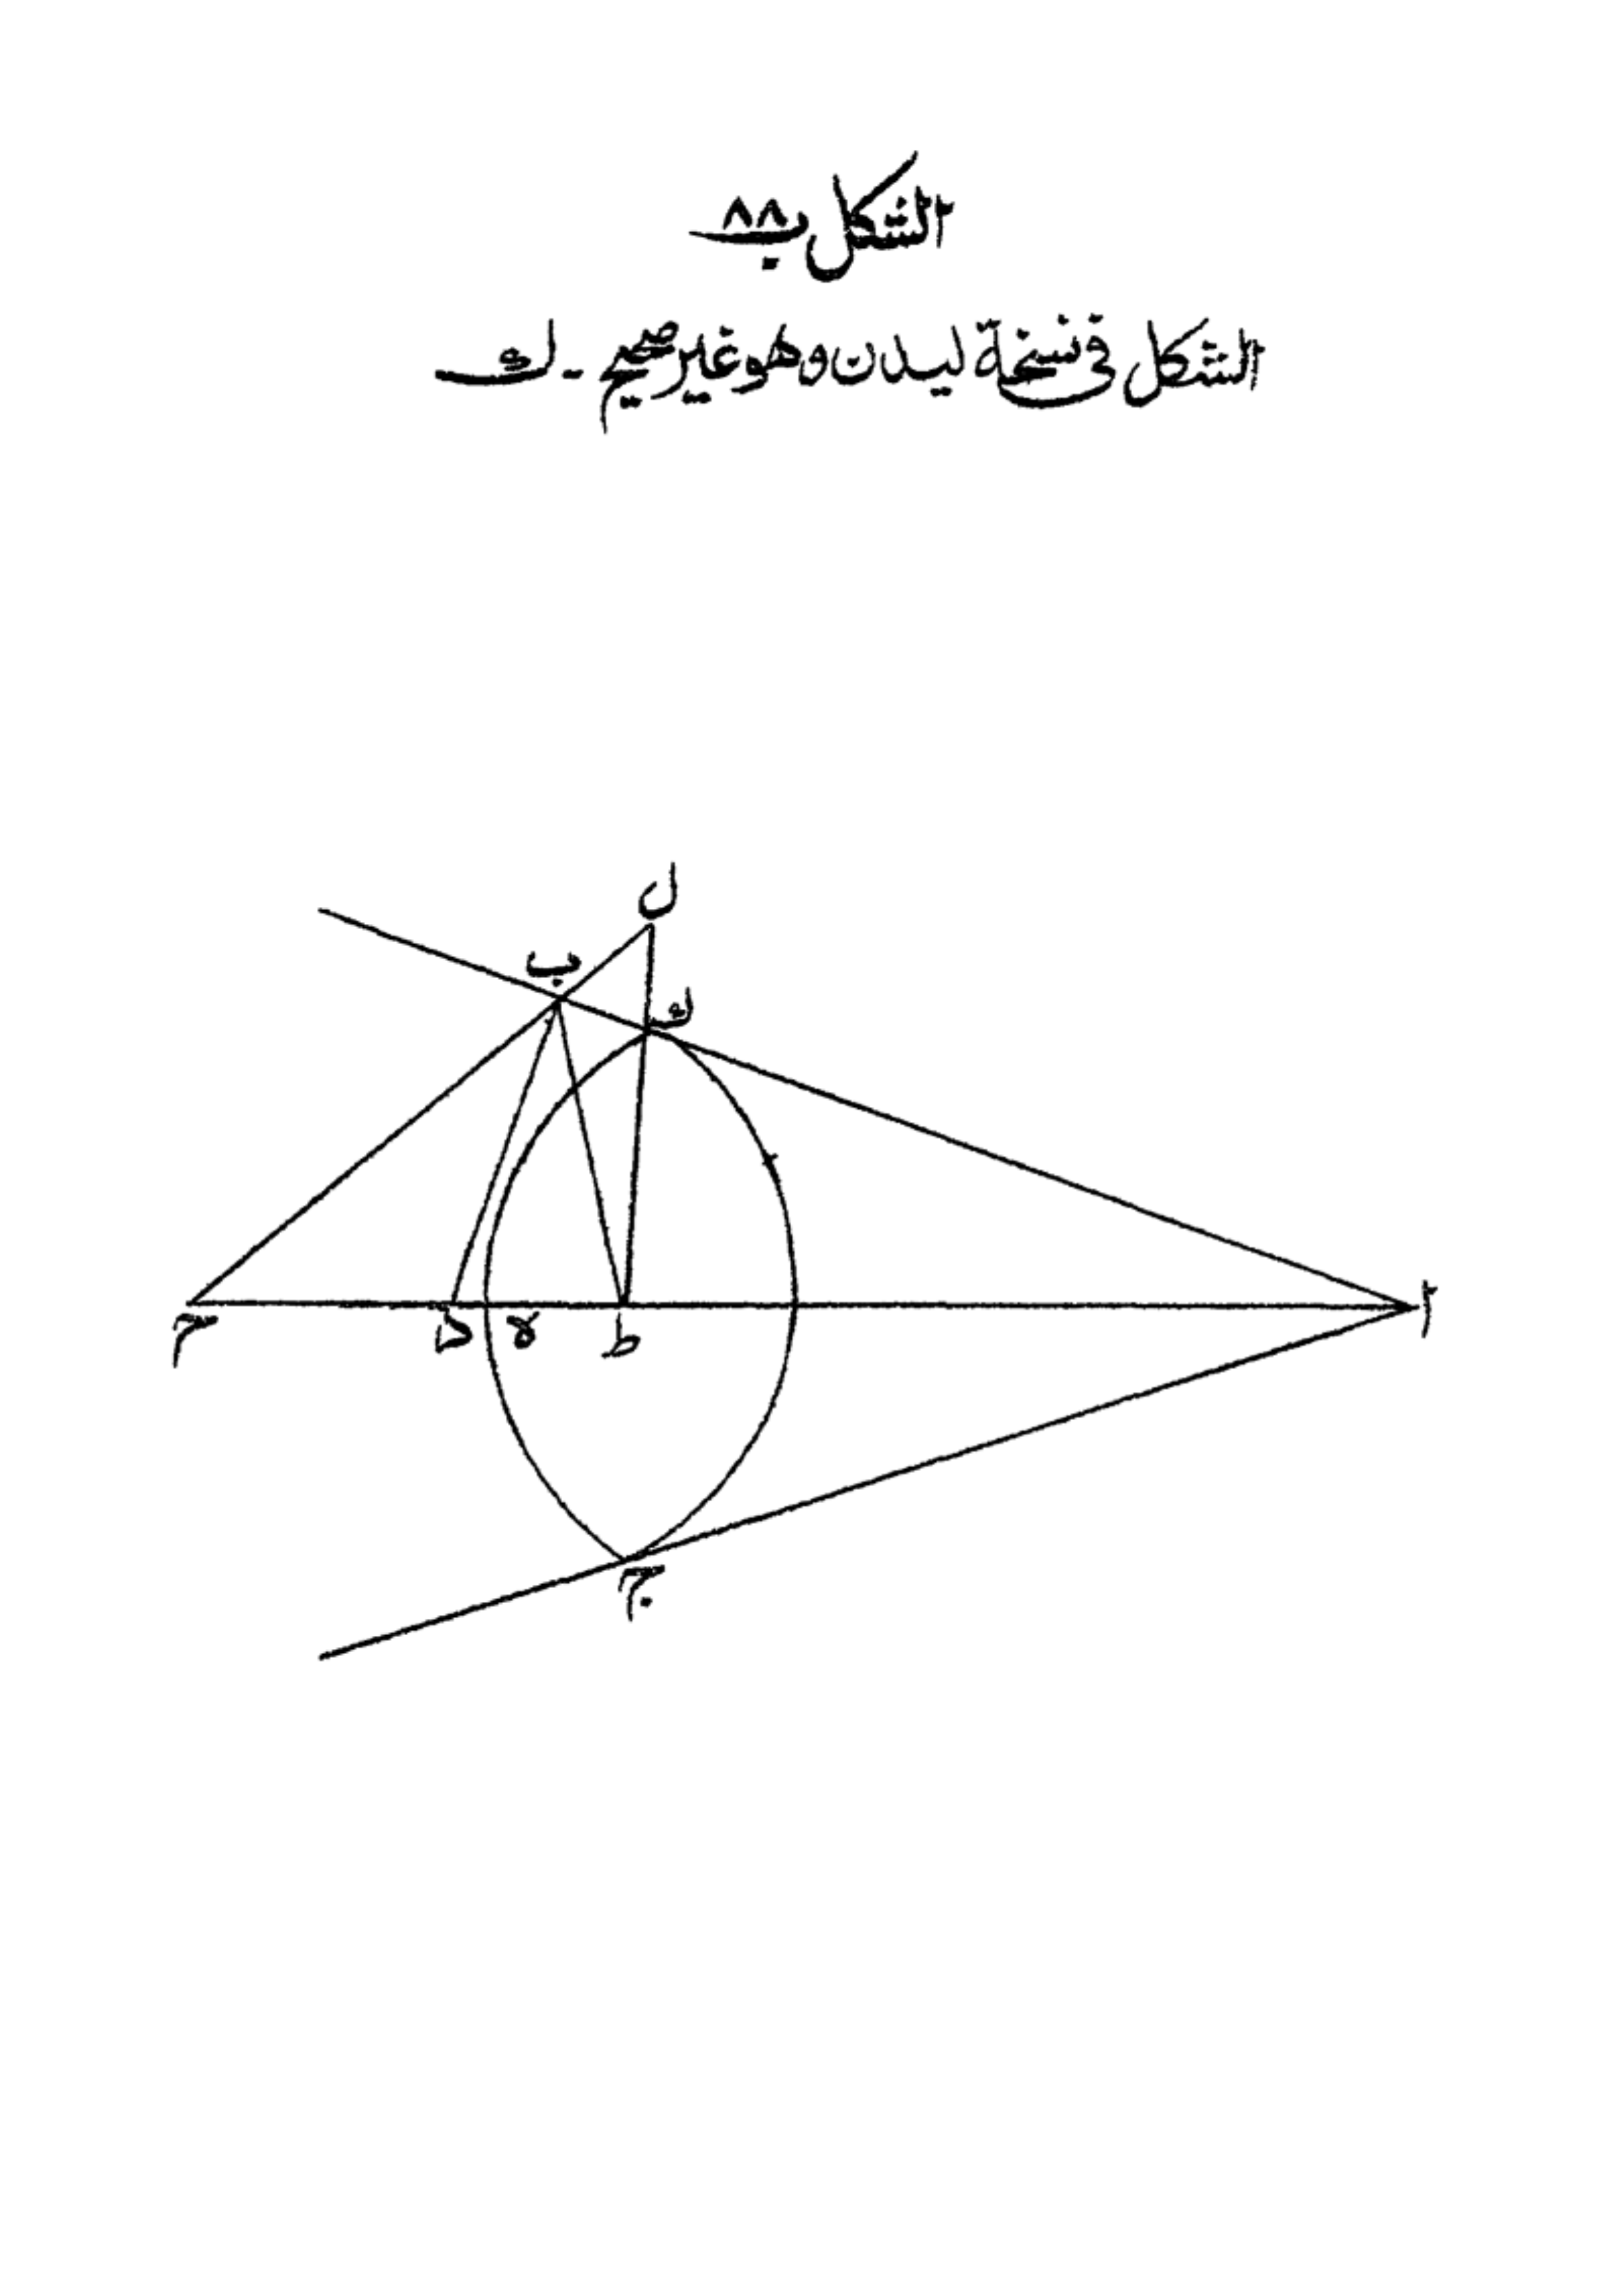 الشكل ٨٨ب
الشكل فى نسخة ليدن وهو غير صحيح - ك
ل
ب
ك
ا
ح
د
ه
ط
ج